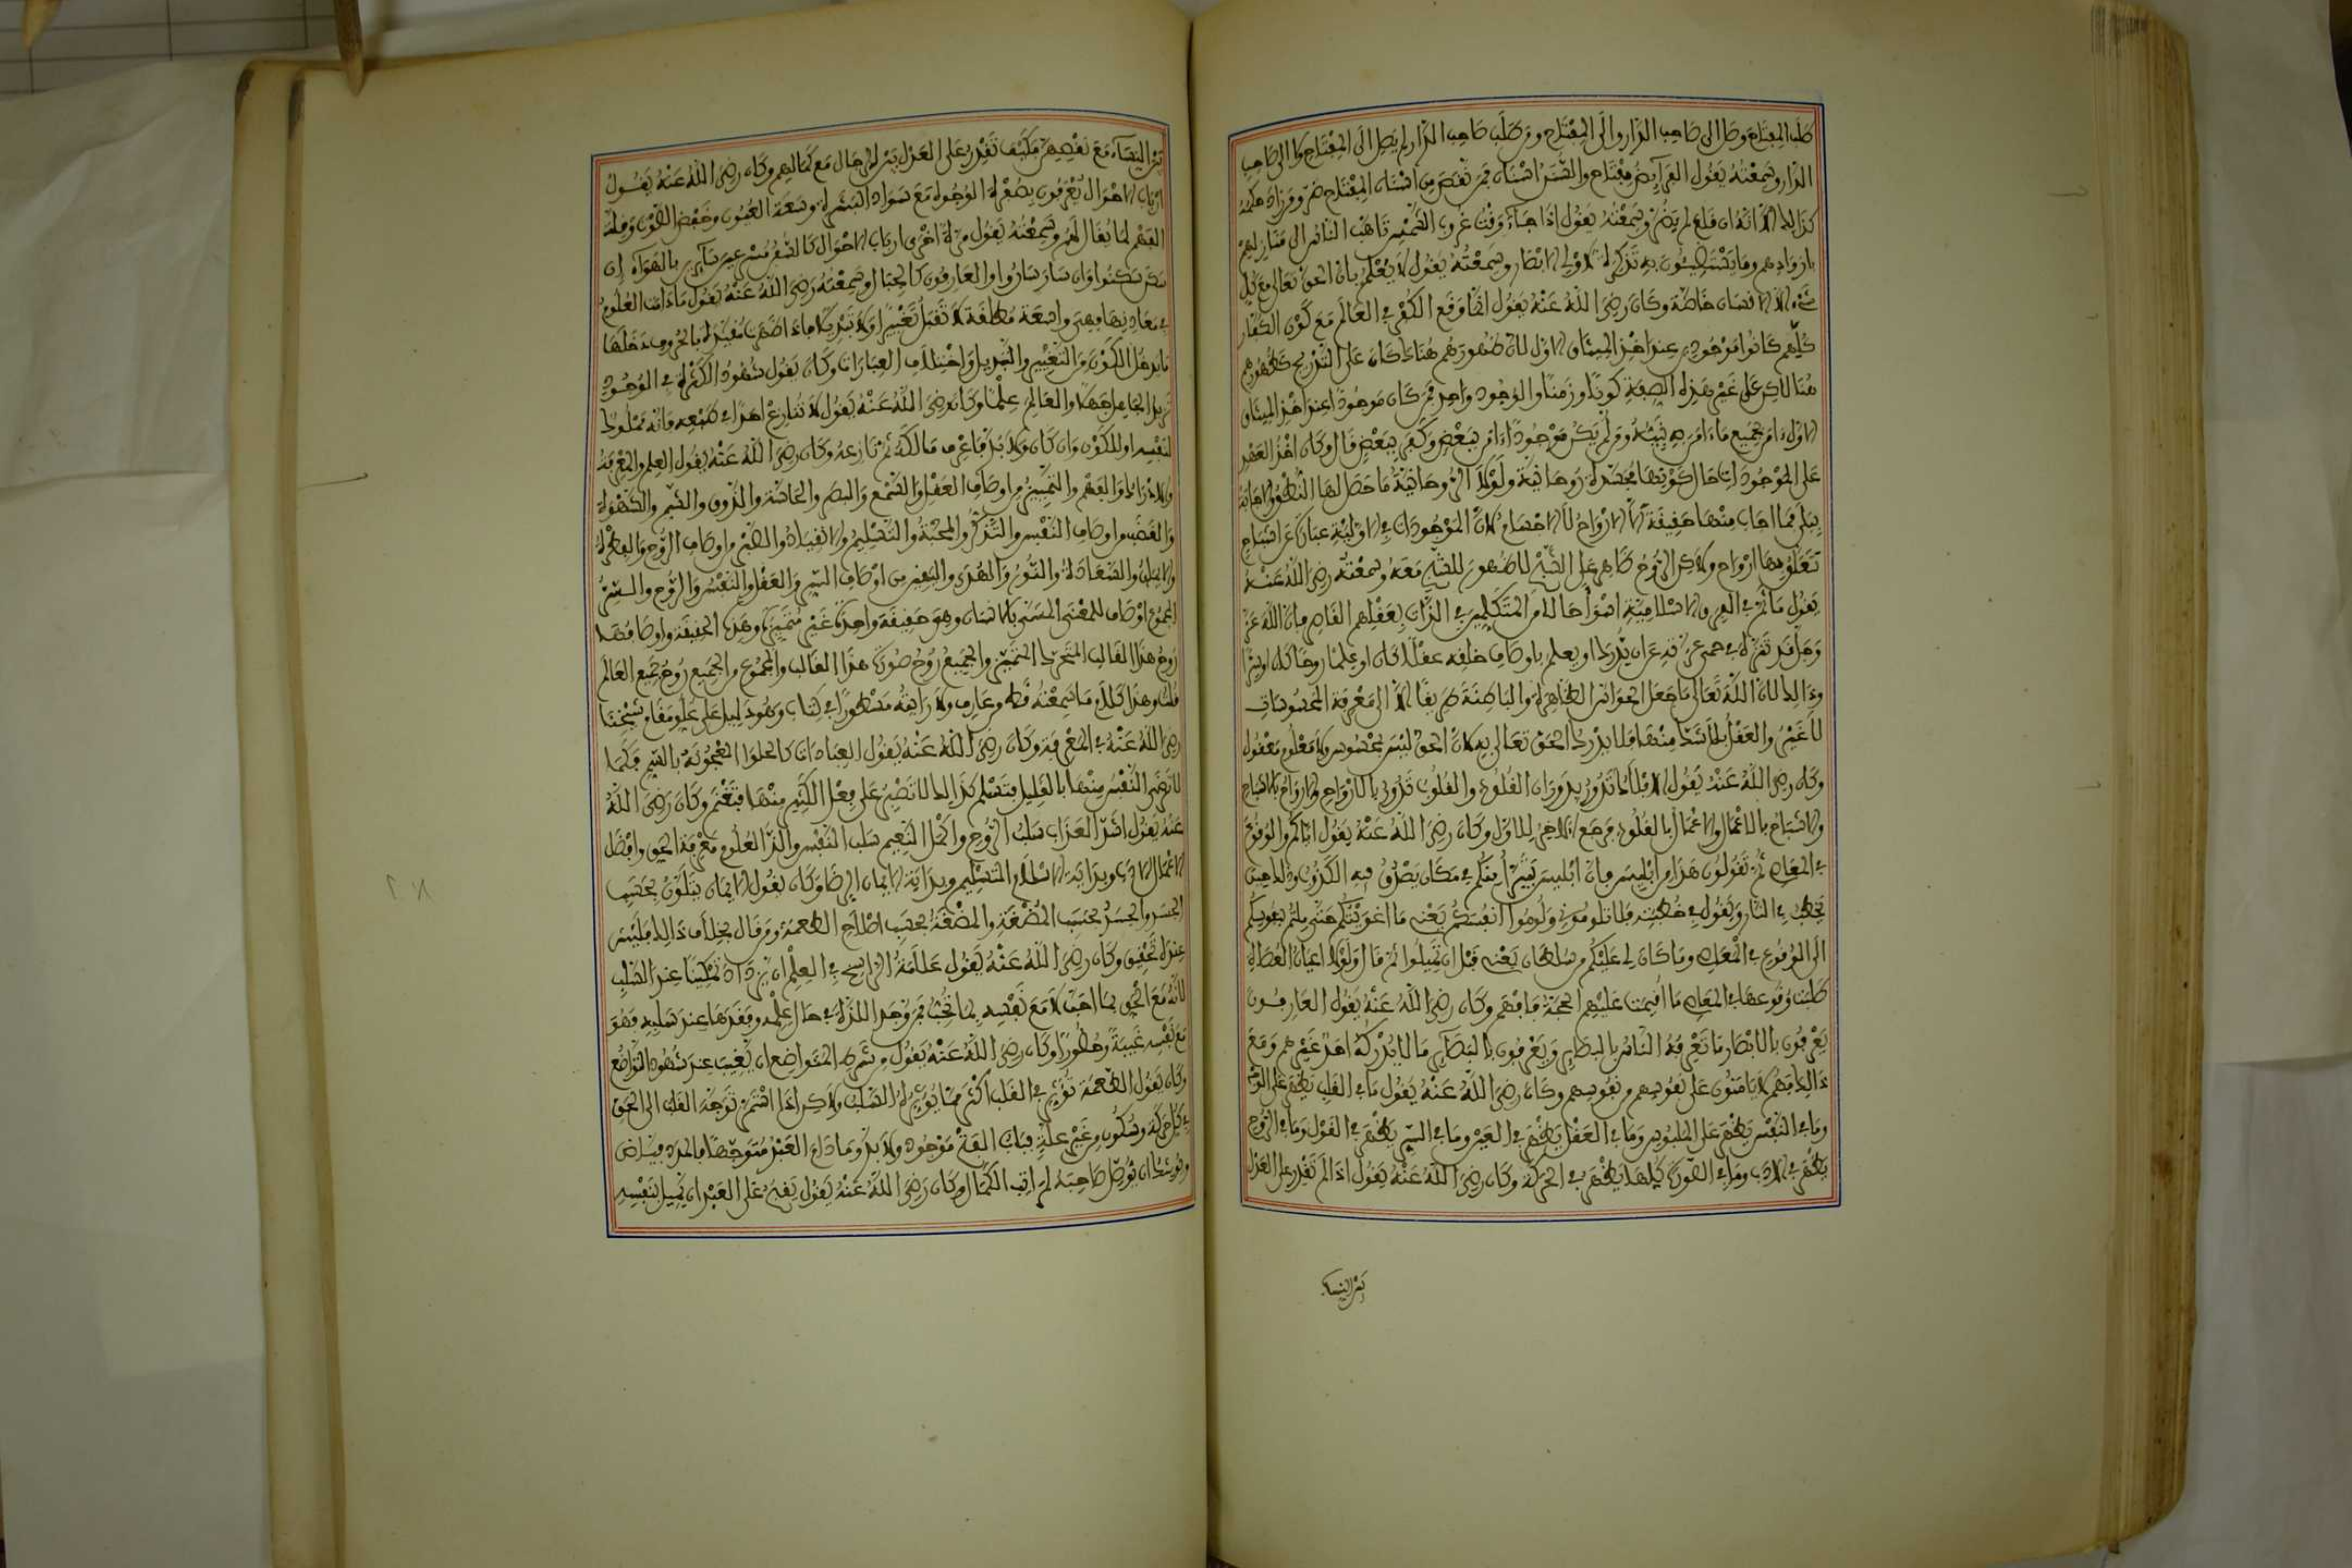 طلب المفتاح وصل الى صاحب الدار والى المفتاح ومن طلب صاحب الدار لم يصل الى المفتاح ولا الى صاحب
الدار وسمعته يقول الفرآيض مفتاح والسنن اسنان فمن نقص من اسنان المفتاح ضر ومن زاد
كذالك الا انه ان قلع لم يضر وسمعته يقول إذا جاء وقت غروب الشمس تاهب الناس الى منازلهم
بازوادهم وما يستضيئون به تذكرة لاولي الابصار وسمعته يقول لا يعلم بان الحق تعالى مع كل
شيء الا الانسان خاصة وكان رضي الله عنه يقول انما وقع الكفر في العالم مع كون الكفار
كلهم كانوا موجودين عند اخذ الميثاق الاول لان ظهورهم هناك كان على التدريج كظهورهم
هنا لاكن على غير هذه الصفة كونا وزمنا والوجود واحد فمن كان موجودا عند اخذ الميثاق
الاول ءامن بجميع ماءامن به نبيه ومن لم يكن موجودا ءامن ببعض وكفر ببعض قال وكان اخذ العهد
على الموجودات حال كونها روحانية ولولا الروحانية ما حصل لها النطق والاجابة
ببلى فما اجاب منها حقيقة الا الارواح لا الاجسام لان الموجودات في الاولية عبارة عن اشباح
تتعلق بها ارواح ولاكن الروح ظاهر على الشبح لا ظهور للشبح معه وسمعته رضي الله عنه
يقول ما ثم في الفرق الاسلامية اسوأ حالا من المتكلمين في الذات بعقلهم القاصر فان الله عز
وجل قد تنزه في حمى عزته عن ان يدرك او يعلم باوصاف خلقه عقلا كان او علما روحا كان او سرا
وذالك لان الله تعالى ما جعل الحواس الظاهرة والباطنة طريقا الا الى معرفة المحسوسات
لا غير والعقل بلا شك منها فلا يدرك الحق تعالى به لان الحق ليس بمحسوس ولا معلوم معقول
وكان رضي الله عنه يقول الافلاك تدور بدوران القلوب والقلوب تدور بالارواح والارواح بالاشباح
والاشباح بالاعمال والاعمال بالقلوب فرجع الاخر للاول وكان رضي الله عنه يقول اياكم والوقوع
في المعاصي ثم تقولون هذا من ابليس فان ابليس يتبرأ منكم في مكان يصدق فيه الكذوب وذلك حين
يخطب في النار ويقول في خطبته فلا تلوموني ولوموا انفسكم يعني ما اغويتكم حتى ملتم بنفوسكم
الى الوقوع في المعاصي وما كان لي عليكم من سلطان يعني قبل ان تميلوا ثم قال ولولا اعيان العصاة
طلبت وقوعها في المعاصي ما اقيمت عليهم الحجة فافهم وكان رضي الله عنه يقول العارفون
يعرفون بالابصار ما تعرفه الناس بالبصاير ويعرفون بالبصاير ما لا يدركه احد من غيرهم ومع
ذالك فهم لا يامنون على نفوسهم من نفوسهم وكان رضي الله عنه يقول ما في القلب يظهر على الوجه
وما في النفس يظهر على الملبوس وما في العقل يظهر في العين وما في السر يظهر في القول وما في الروح
يظهر في الادب وما في الصورة كلها يظهر في الحركة وكان رضي الله عنه يقول اذا لم تقدر على العدل
بين النسا
بين النساء مع نقصهن فكيف تقدر على العدل بين الرجال مع كمالهم وكان رضي الله عنه يقول
ارباب الاحوال يعرفون بصفرة الوجوه مع سواد البشرة وسعة العيون وخفض الصوت وقلة
الفهم لما يقال لهم وسمعته يقول مرة اخرى ارباب الاحوال كالسفن سايرين بالهواء إن
سكن سكنوا وان سار ساروا والعارفون كالجبال وسمعته رضي الله عنه يقول ما دامت العلوم
في معادنها فهي واسعة مطلقة لا تقبل تغييرا ولا تبديلا فاذا ظهرت مقيدة بالحروف دخلها
ما يدخل الكون من التغيير والتبديل واختلاف العبارات وكان يقول شهود الكثرة في الوجود
تزيد الجاهل جهلا والعالم علما وكان رضي الله عنه يقول لا تنازع احدا في طبعه فانه مملوك
لنفسه او للكون وان كان ولا بد فاعرف مالكه ثم نازعه وكان رضي الله عنه يقول العلم والمعرفة
والادراك والفهم والتمييز من اوصاف العقل والسمع والبصر والحاسة والذوق والشم والشهوة
والغضب من اوصاف النفس والتذكر والمحبة والتسليم والانقياد والصبر من اوصاف الروح والفطرة
والايمان والسعادة والنور والهدى واليقين من اوصاف السر والعقل والنفس والروح والسر
المجموع اوصاف للمعنى المسمى بالانسان وهو حقيقة واحدة غير متميزة وهذه الحقيقة واوصافها
روح هذا القالب المتحرك المتميز والجميع روح صورة هذا القالب والمجموع من الجميع روح جميع العالم
قلت وهذا كلام ما سمعته قط من عارف ولا رايته مسطورا في كتاب وهو دليل على علو مقام شيخنا
رضي الله عنه في المعرفة وكان رضي الله عنه يقول العبادات كالحلوا المعجونة بالسم فكما
لا ترضى النفس منها بالقليل فتسلم كذالك لا تصبر على فعل الكثير منها فتغنم وكان رضي الله
عنه يقول اشد العذاب سلب الروح واكمل النعيم سلب النفس والذ العلوم معرفة الحق وافضل
الاعمال الادب وبداية الاسلام التسليم وبداية الايمان الرضا وكان يقول الايمان يتلون بحسب
الجسد والجسد بحسب المضغة والمضغة بحسب اصلاح الطعمة ومن قال بخلاف ذالك فليس
عنده تحقيق وكان رضي الله عنه يقول علامة الراسخ في العلم ان يزداد تمكينا عند السلب
لانه مع الحق بما احب لا مع نفسه بما تحب فمن وجد اللذة في حال علمه وفقدها عند سلبه فهو
مع نفسه غيبة وحضورا وكان رضي الله عنه يقول من شرط المتواضع ان يغيب عن شهود التواضع
وكان يقول الطعمة تؤثر في القلب اكثر مما يؤثره السلب ولاكن اذا استمر توجه القلب الى الحق
في كل حركة وسكون من غير علة فباب الفتح موجود ولا بد وما دام العبد متوجها فالمدد فياض
ويوشك ان يوصل صاحبه لمراتب الكمال وكان رضي الله عنه يقول يقبح على العبد ان يميل لنفسه